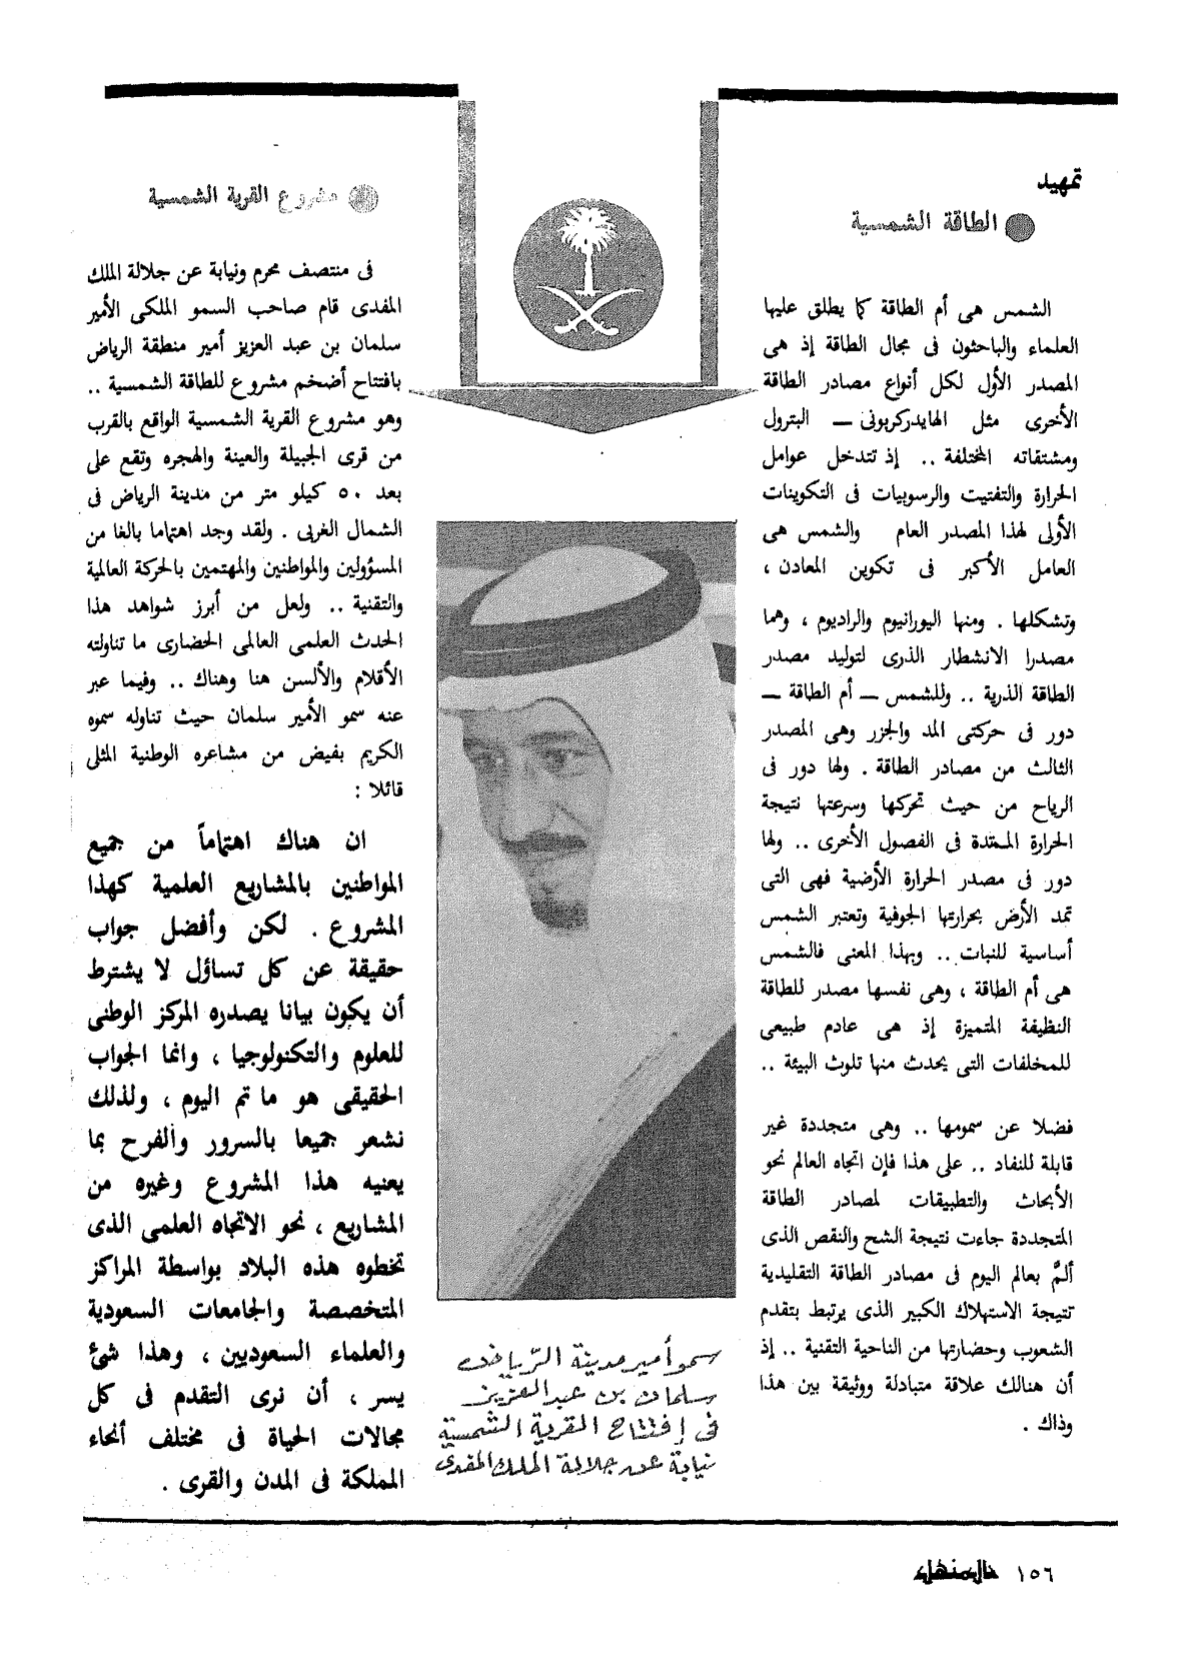 تمهيد
الطاقة الشمسية
الشمس هى أم الطاقة كما يطلق عليها
العلماء والباحثون فى مجال الطاقة إذ هى
المصدر الأول لكل أنواع مصادر الطاقة
الأخرى مثل الهايدركربونى — البترول
ومشتقاته المختلفة .. إذ تتدخل عوامل
الحرارة والتفتيت والرسوبيات فى التكوينات
الأولى لهذا المصدر العام والشمس هى
العامل الأكبر فى تكوين المعادن ،
وتشكلها . ومنها اليورانيوم والراديوم ، وهما
مصدرا الانشطار الذرى لتوليد مصدر
الطاقة الذرية .. وللشمس — أم الطاقة —
دور فى حركتى المد والجزر وهى المصدر
الثالث من مصادر الطاقة . ولها دور فى
الرياح من حيث تحركها وسرعتها نتيجة
الحرارة الممتدة فى الفصول الأخرى .. ولها
دور فى مصدر الحرارة الأرضية فهى التى
تمد الأرض بحرارتها الجوفية وتعتبر الشمس
أساسية للنبات .. وبهذا المعنى فالشمس
هى أم الطاقة ، وهى نفسها مصدر للطاقة
النظيفة المتميزة إذ هى عادم طبيعى
للمخلفات التى يحدث منها تلوث البيئة ..
فضلا عن سمومها .. وهى متجددة غير
قابلة للنفاد .. على هذا فإن اتجاه العالم نحو
الأبحاث والتطبيقات لمصادر الطاقة
المتجددة جاءت نتيجة الشح والنقص الذى
ألمَّ بعالم اليوم فى مصادر الطاقة التقليدية
نتيجة الاستهلاك الكبير الذى يرتبط بتقدم
الشعوب وحضارتها من الناحية التقنية .. إذ
أن هنالك علاقة متبادلة ووثيقة بين هذا
وذاك .
سمو أمير مدينة الرياض
سلمان بن عبد العزيز
فى إفتتاح القرية الشمسية
نيابة عن جلالة الملك المفدى
مشروع القرية الشمسية
فى منتصف محرم ونيابة عن جلالة الملك
المفدى قام صاحب السمو الملكى الأمير
سلمان بن عبد العزيز أمير منطقة الرياض
بافتتاح أضخم مشروع للطاقة الشمسية ..
وهو مشروع القرية الشمسية الواقع بالقرب
من قرى الجبيلة والعينة والهجره وتقع على
بعد ٥٠ كيلو متر من مدينة الرياض فى
الشمال الغربى . ولقد وجد اهتماما بالغا من
المسؤولين والمواطنين والمهتمين بالحركة العالمية
والتقنية .. ولعل من أبرز شواهد هذا
الحدث العلمى العالمى الحضارى ما تناولته
الأقلام والألسن هنا وهناك .. وفيما عبر
عنه سمو الأمير سلمان حيث تناوله سموه
الكريم بفيض من مشاعره الوطنية المثلى
قائلا :
ان هناك اهتماماً من جميع
المواطنين بالمشاريع العلمية كهذا
المشروع . لكن وأفضل جواب
حقيقة عن كل تساؤل لا يشترط
أن يكون بيانا يصدره المركز الوطنى
للعلوم والتكنولوجيا ، وانما الجواب
الحقيقى هو ما تم اليوم ، ولذلك
نشعر جميعا بالسرور والفرح بما
يعنيه هذا المشروع وغيره من
المشاريع ، نحو الاتجاه العلمى الذى
تخطوه هذه البلاد بواسطة المراكز
المتخصصة والجامعات السعودية
والعلماء السعوديين ، وهذا شئ
يسر ، أن نرى التقدم فى كل
مجالات الحياة فى مختلف أنحاء
المملكة فى المدن والقرى .
١٥٦ المنهل